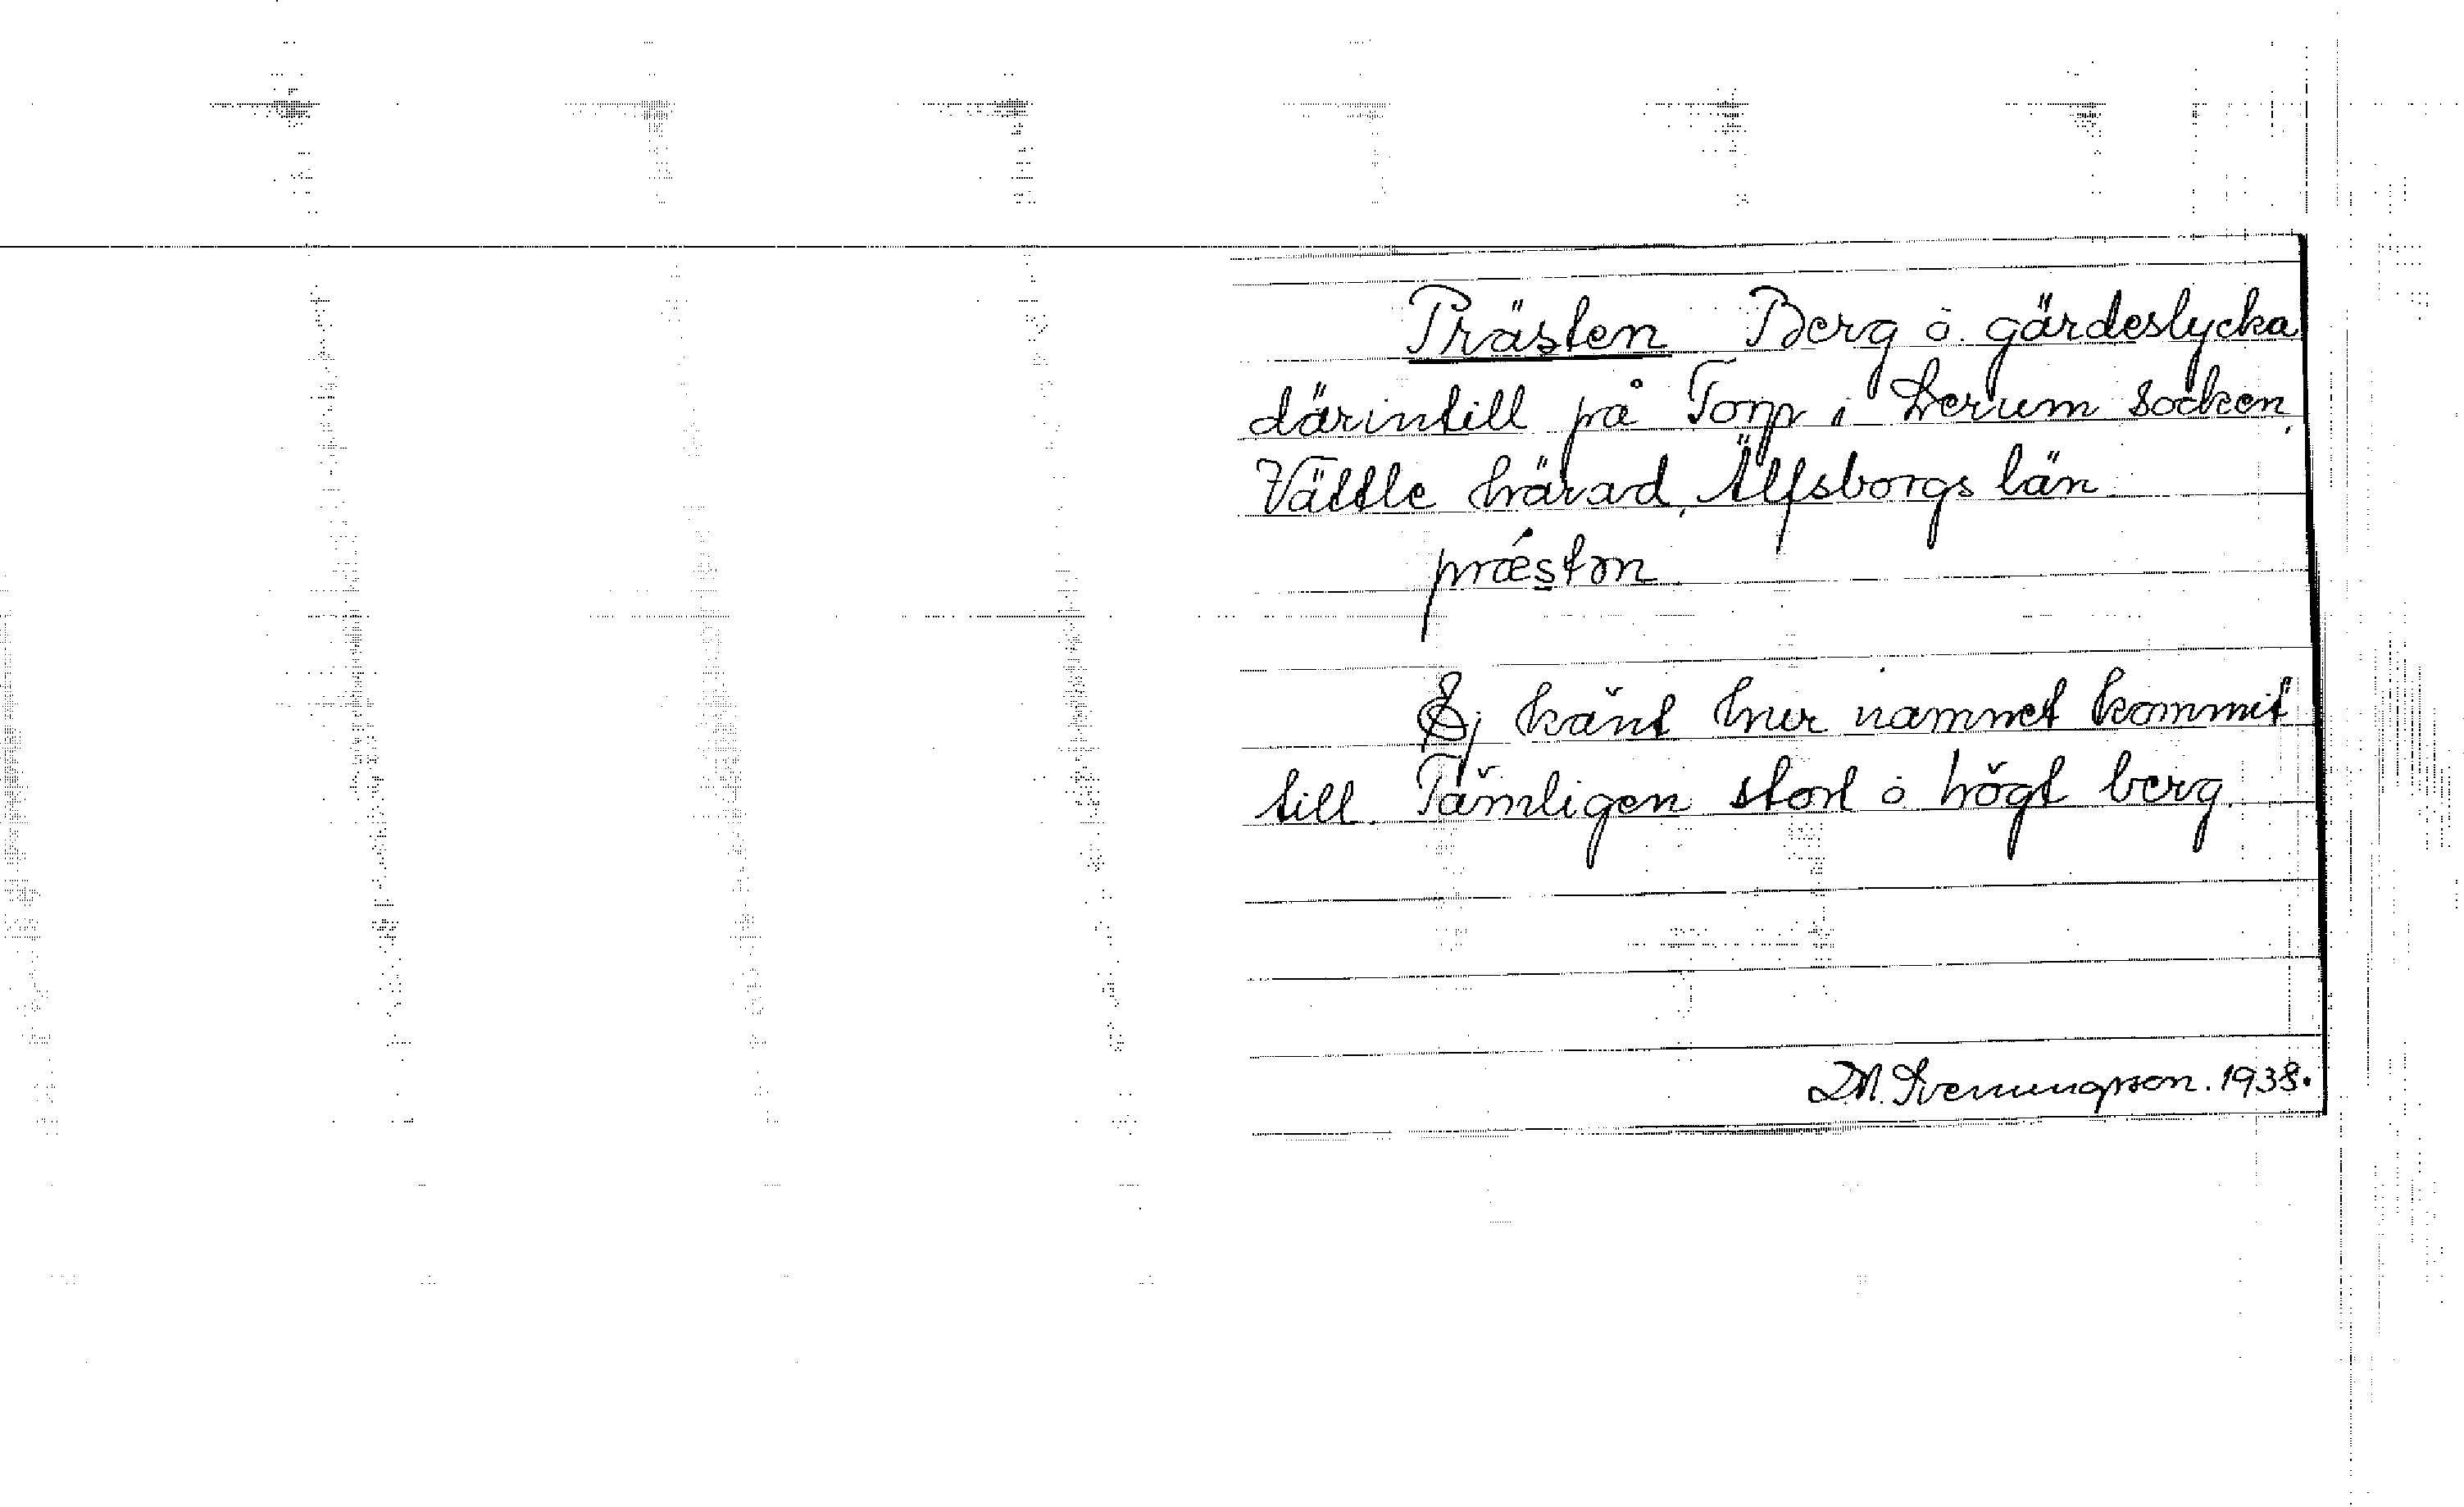 Prästen Berg o. gärdeslycka
därintill på Torp i Lerum socken,
Vättle härad, Älfsborgs län
præston.
Ej känt hur namnet kommit
till. Tämligen stort o högt berg.
D.M. Svenungsson. 1938.